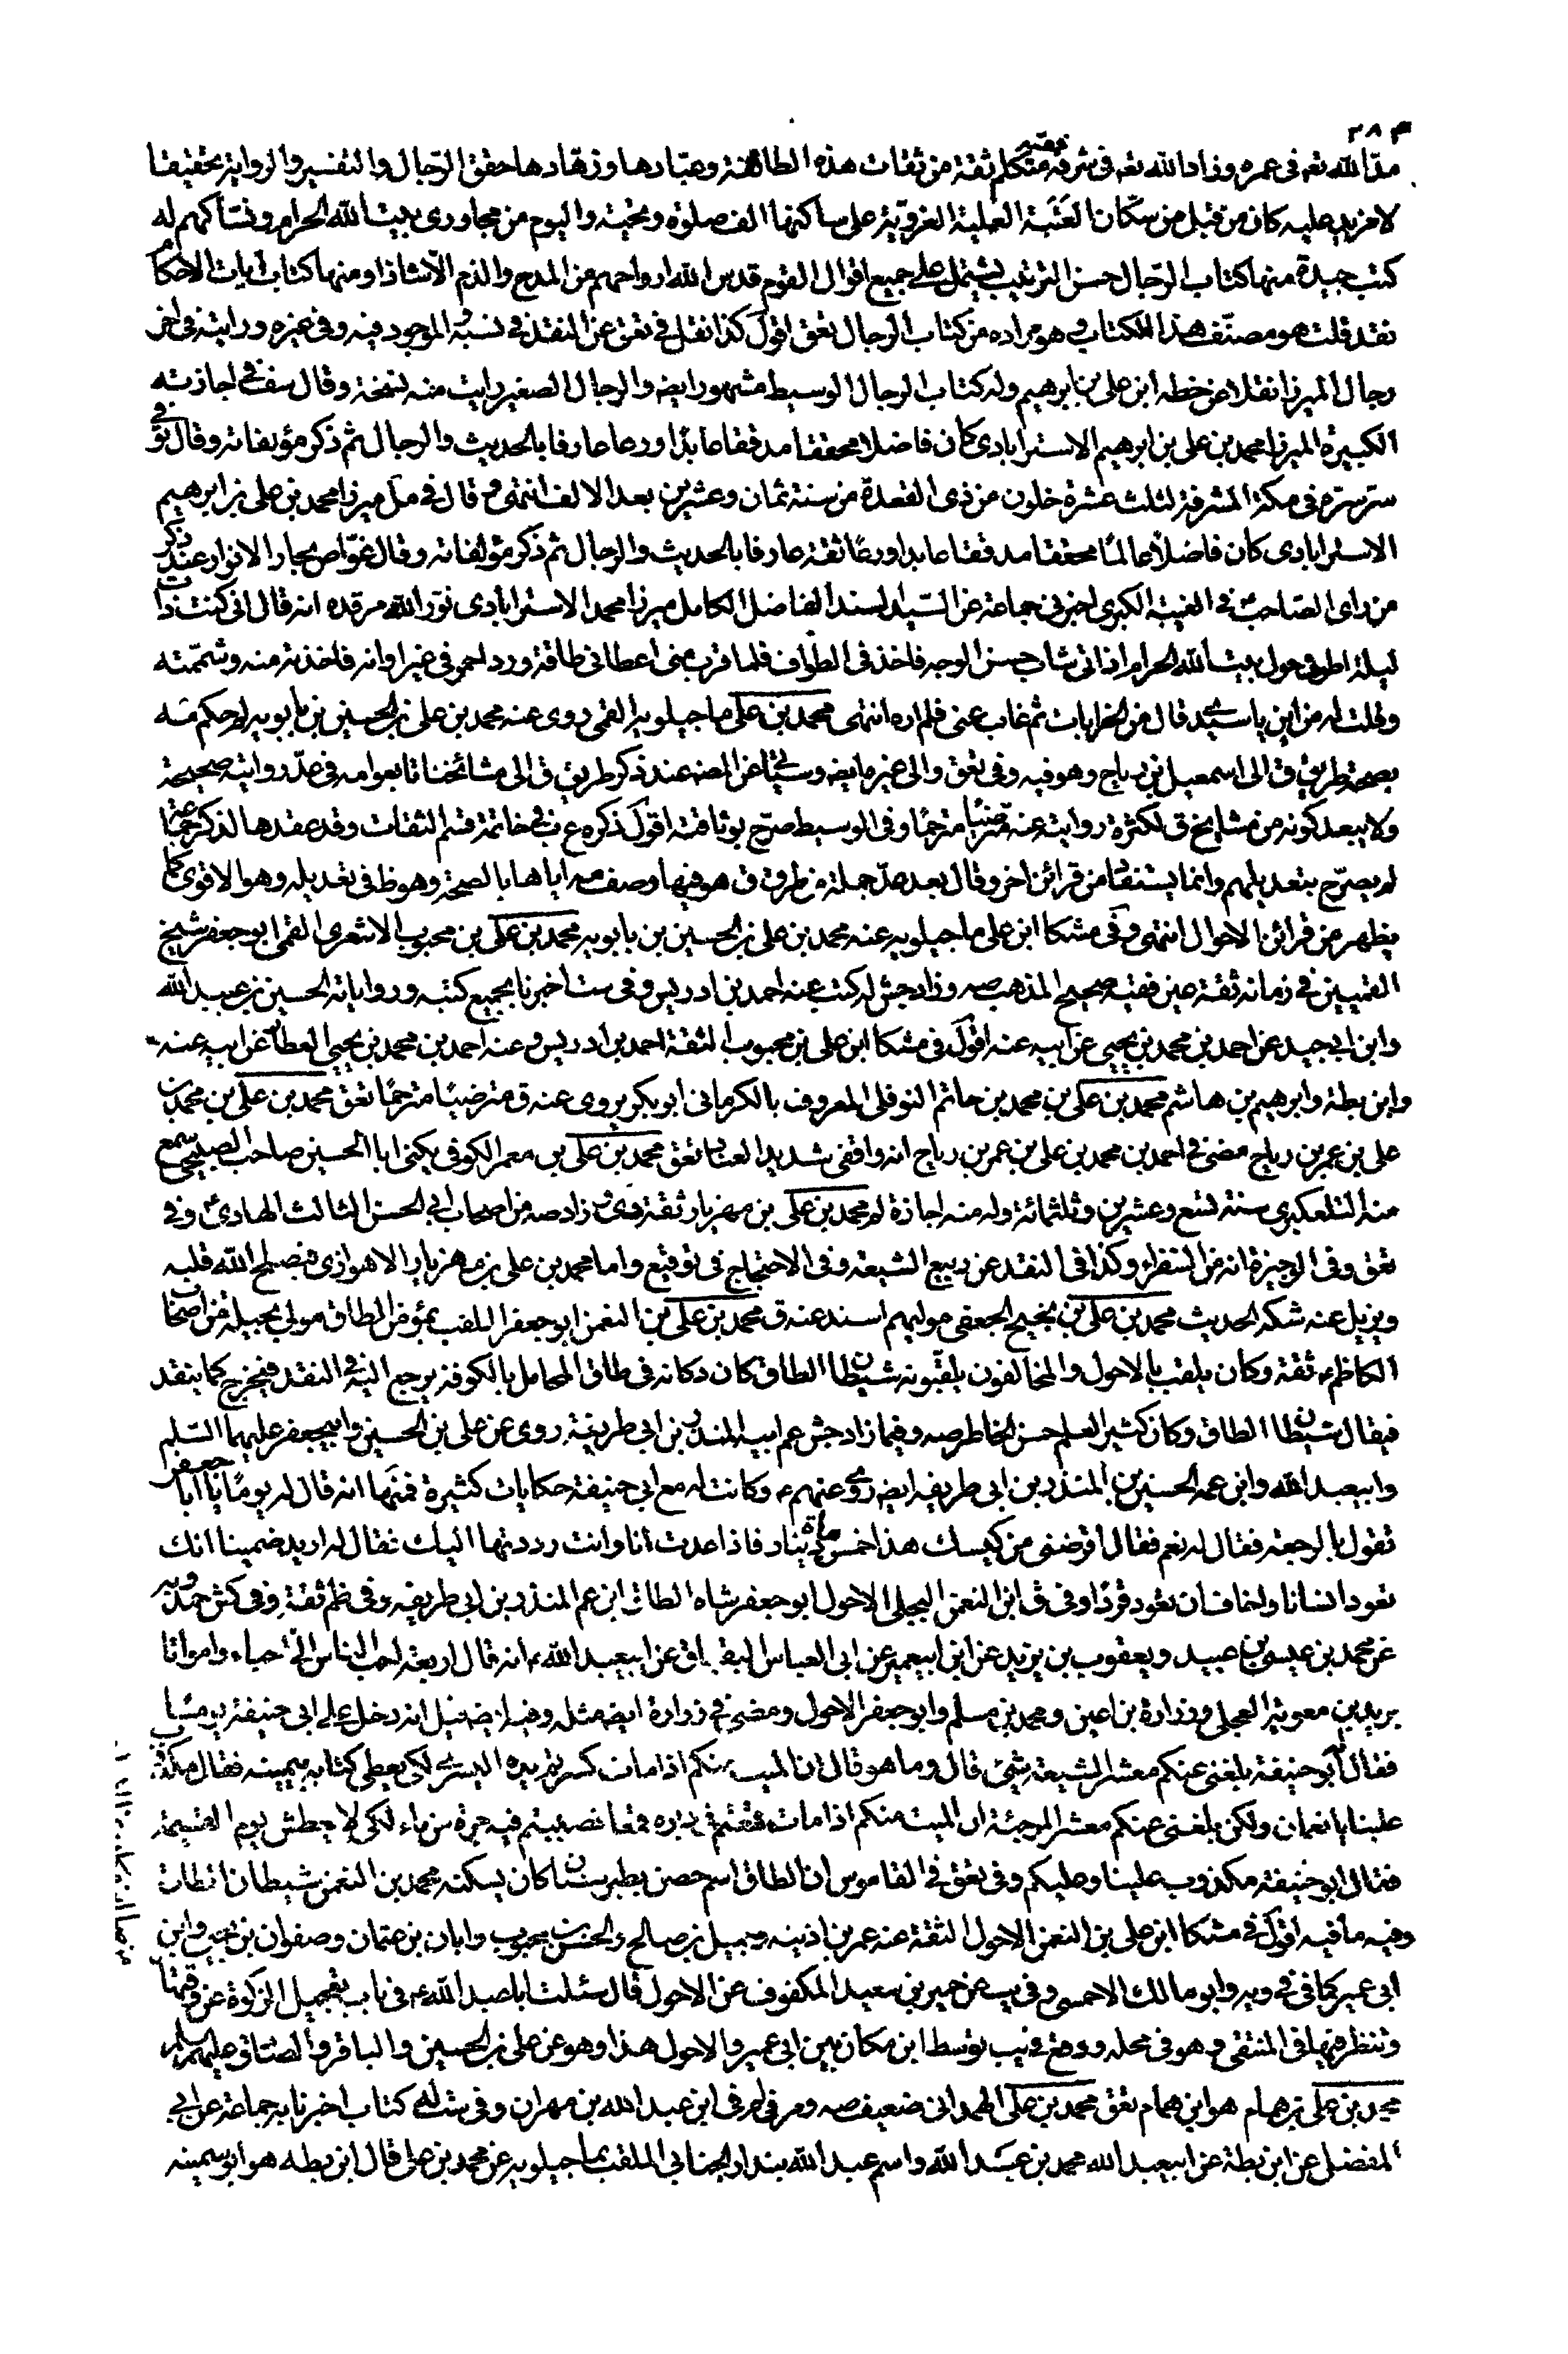 ٢٨٤
مدّ الله تعه فى عمره وزاد الله تعه فى شرفه فقيه متكلم ثقة من ثقات هذه الطائفة وعبّادها وزهّادها حقق الرّجال والتفسير والرواية تحقيقا
لا مزيد عليه كان من قبل من سكّان العتبة العلية الغروية على ساكنها الف صلوة وتحية واليوم من مجاورى بيت الله الحرام ونسّاكهم له
كتب جيدة منها كتاب الرّجال حسن الترتيب يشتمل على جميع اقوال القوم قدس الله ارواحهم من المدح والذم الّا شاذا ومنها كتاب آيات الاحكام
نقد قلت هو مصنّف هذا الكتاب وهو مراده من كتاب الرجال تعق اقول كذا نقل فى تعق عن النقد فى نسبة الموجود فيه وفى غيره ورايته فى اخر
رجال الميرزا نقلا عن خطه ابن على بن ابرهيم وله كتاب الرجال الوسيط مشهور ايضه والرجال الصغير رايت منه نسخة وقال سف فى اجازته
الكبيرة الميرزا محمد بن على بن ابرهيم الاسترابادى كان فاضلا محققا مدققا عابدا ورعا عارفا بالحديث والرجال ثم ذكر مؤلفاته وقال توفى
سرّ سرّه فى مكة المشرفة لثلث عشرة خلون من ذى القعدة من سنة ثمان وعشرين بعد الالف انتهى وقال فى مل ميرزا محمد بن على بن ابرهيم
الاسترابادى كان فاضلا عالمًا محققا مدققا عابدا ورعًا ثقة عارفا بالحديث والرجال ثم ذكر مؤلفاته وقال غوّاص بحار الانوار عند ذكر
من راى الصّاحب ع فى الغيبة الكبرى اخبرنى جماعة عن السّيد السند الفاضل الكامل ميرزا محمد الاسترابادى نوّر الله مرقده انه قال انى كنت ذات
ليلة اطوف حول بيت الله الحرام اذ اتى شاب حسن الوجه فاخذ فى الطواف فلما قرب منى اعطانى طاقة ورد احمر فى غير اوانه فاخذته منه وشممّته
وقلت له من اين يا سيدى قال من الخرابات ثم غاب عنى فلم اره انتهى محمد بن على ماجيلويه القمى روى عنه محمد بن على بن الحسين بن بابويه لم حكم صه
بصحة طريق ق الى اسمعيل بن رباح وهو فيه وفى تعق والى غيره ايضه وسيأتى عن المصه عند ذكر طريق ق الى مشائخنا تابعوا مه فى عدّ روايته صحيحة
ولا يبعد كونه من مشايخ ق لكثرة روايته عنه مترضّيًا مترحمًا وفى الوسيط صرّح بوثاقته اقول ذكره ع ب فى خاتمة قسم الثقات وقد عقدها لذكر جماعة
لم يصرّح بتعديلهم وانما يستفاد من قرائن اخر وقال بعد عدّ جملة من طرق ق هو فيها وصف مه اياها بالصحة وهو ظ فى تعديله وهو الاقوى كما
يظهر من قرائن الاحوال انتهى وفى مشكا ابن على ماجيلويه عنه محمد بن على بن الحسين بن بابويه محمد بن على بن محبوب الاشعرى القمى ابو جعفر شيخ
القميين فى زمانه ثقة عين فقيه صحيح المذهب صه وزاد جش له كتب عنه احمد بن ادريس وفى ست اخبرنا بجميع كتبه ورواياته الحسين بن عبيد الله
وابن ابى جيد عن احمد بن محمد بن يحيى عن ابيه عنه اقول فى مشكا ابن على بن محبوب الثقة احمد بن ادريس وعنه احمد بن محمد بن يحيى العطار عن ابيه عنه
وابن بطة وابرهيم بن هاشم محمد بن على بن محمد بن حاتم النوفلى المعروف بالكرمانى ابو بكر يروى عنه ق مترضيًا مترحمًا تعق محمد بن على بن محمد بن
على بن عمر بن رباح مضى فى احمد بن محمد بن على بن عمر بن رباح انه واقفى شديد العناد تعق محمد بن على بن معمر الكوفى يكنى ابا الحسين صاحب الصبيحى سمع
منه التلعكبرى سنة تسع وعشرين وثلثمائة وله منه اجازة لم محمد بن على بن مهزيار ثقة دى وزاد صه من اصحاب ابى الحسن الثالث الهادى ع وفى
تعق وفى الوجيزة انه من السفراء وكذا فى النقد عن ربيع الشيعة وفى الاحتجاج فى توقيع واما محمد بن على بن مهزيار الاهوازى فيصلح الله قلبه
ويزيل عنه شكه الحديث محمد بن على بن نجيح الجعفى موليهم اسند عنه ق محمد بن على بن النعمن ابو جعفر الملقب بمؤمن الطاق مولى بجيلة من اصحاب
الكاظم ع ثقة وكان يلقب بالاحول والمخالفون يلقّبونه شيطان الطاق كان دكانه فى طاق المحامل بالكوفة يرجع اليه فى النقد فيخرج كما ينقد
فيقال شيطان الطاق وكان كثير العلم حسن الخاطر صه وفيما زاد جش عم ابيه المنذر بن ابى طريفة روى عن على بن الحسين وابى جعفر عليهما السّلم
وابى عبد الله وابن عمه الحسين بن المنذر بن ابى طريفه ايضه روى عنهم ع وكانت له مع ابى حنيفة حكايات كثيرة فمنها انه قال له يومًا يا ابا جعفر
تقول بالرجعة فقال له نعم فقال اقرضنى من كيسك هذا خمس مائة دينار فاذا عدت انا وانت رددتها اليك فقال له اريد ضمينا انك
تعود انسانا واخاف ان تعود قردًا وفى ق ابن النعمن البجلى الاحول ابو جعفر شاه الطاق ابن عم المنذر بن ابى طريفه وفى ظم ثقة وفى كش حمدويه
عن محمد بن عيسى بن عبيد ويعقوب بن يزيد عن ابن ابى عمير عن ابى العباس البقباق عن ابى عبد الله ع انه قال اربعة احب الناس الىّ احياء وامواتا
بريد بن معوية العجلى وزرارة بن اعين ومحمد بن مسلم وابو جعفر الاحول ومضى فى زرارة ايضه مثله وفيه ايضه قيل انه دخل على ابى حنيفة يوما
فقال ابو حنيفة بلغنى عنكم معشر الشيعة شئ قال وما هو قال ان الميت منكم اذا مات كسرتم يده اليسرى لكى يعطى كتابه بيمينه فقال مكذوب
علينا يا نعمان ولكن بلغنى عنكم معشر المرجئة ان الميت منكم اذا مات قمعتم فى دبره قمعا فصببتم فيه جرة من ماء لكى لا يعطش يوم القيمة
فقال ابو حنيفة مكذوب علينا وعليكم وفى تعق فى القاموس ان الطاق اسم حصن بطبرستان كان يسكنه محمد بن النعمن شيطان الطاق
وفيه ما فيه اقول فى مشكا ابن على بن النعمن الاحول الثقة عنه عمر بن اذينه وجميل بن صالح والحسن بن محبوب وابان بن عثمان وصفوان بن يحيى وابن
ابى عمير كما فى ويه وابو مالك الاحمسى وفى يب عن حميد بن سعيد المكفوف عن الاحول قال سئلت ابا عبد الله ع فى باب تعجيل الزكوة عن وقتها
وتنظر فيها فى المنتقى وهو فى محله ووقع فى يب توسط ابن مكان بين ابى عمير والاحول هذا وهو عن على بن الحسين والباقر والصّادق عليهم السلم
محمد بن على بن همام هو ابن همام تعق محمد بن على الهمدانى ضعيف صه ومر فى ابن عبد الله بن مهران وفى ست له كتاب اخبرنا به جماعة عن ابى
المفضل عن ابن بطة عن ابى عبد الله محمد بن عبيد الله واسم عبد الله بندار الجنابى الملقب بماجيلويه عن محمد بن على قال ابن بطه هو ابو سمينه